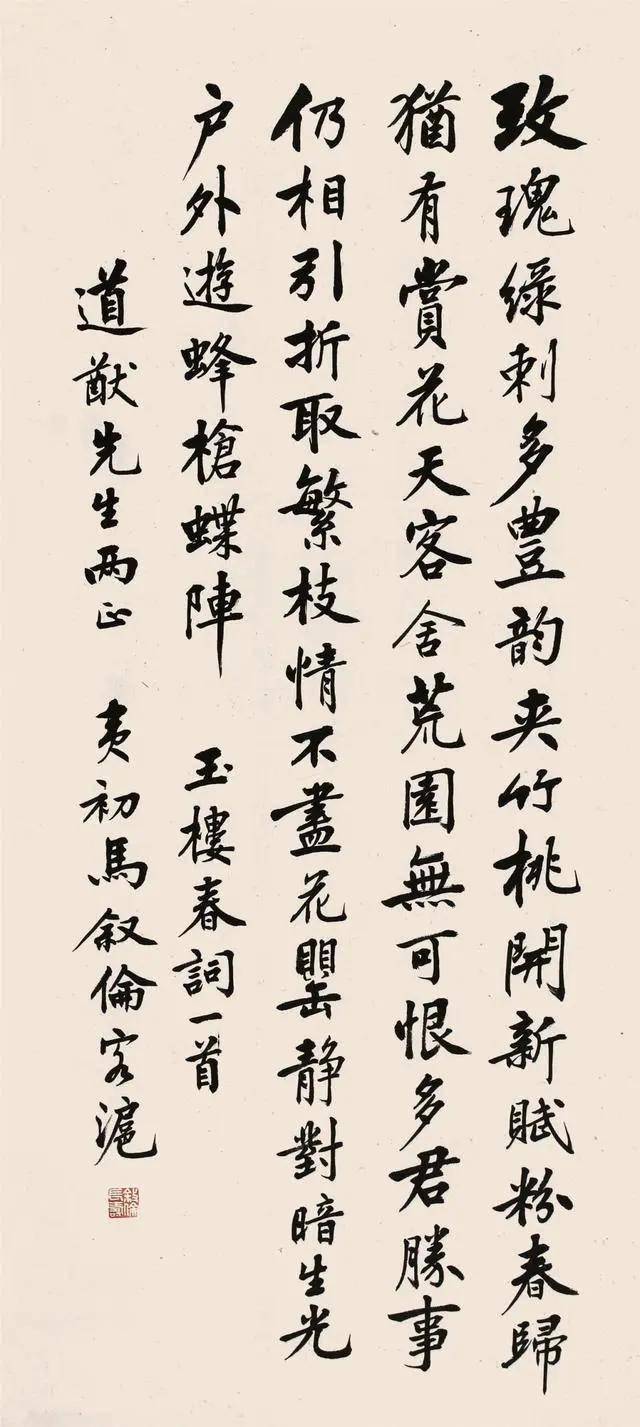 玫瑰綠刺多豊韵夾竹桃開新賦粉春歸
猶有賞花天客舍荒園無可恨多君勝事
仍相引折取繁枝情不盡花罌静對暗生光
户外遊蜂槍蝶陣 玉樓春詞一首
道猷先生兩正 夷初馬叙倫客滬
叙倫長壽